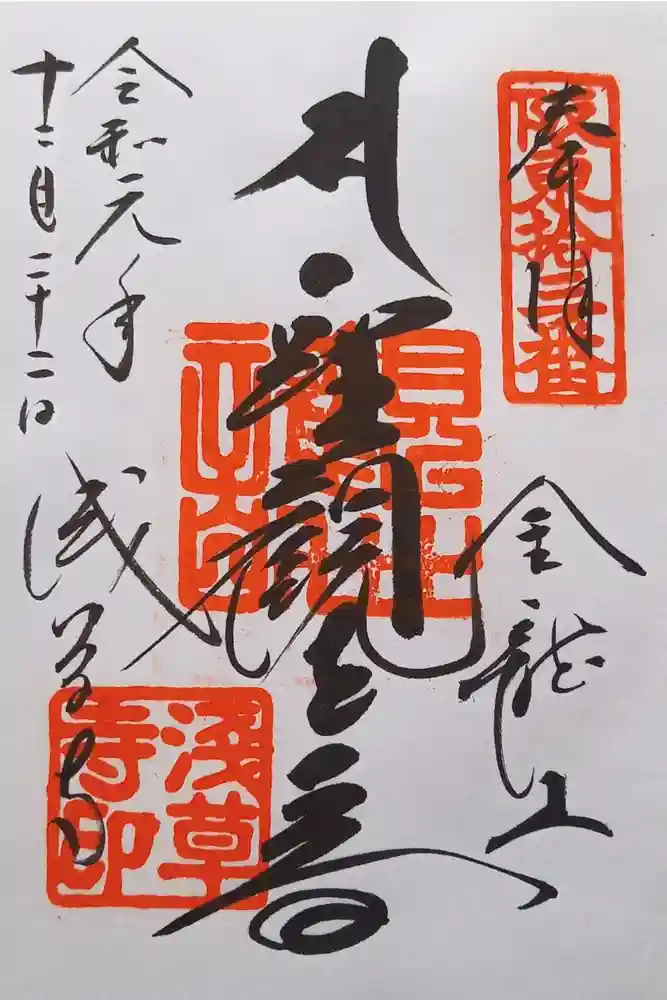 奉拝
坂東拾三番
金龍山
聖観世音
浅草寺
淺草寺印
令和元年
十二月二十二日